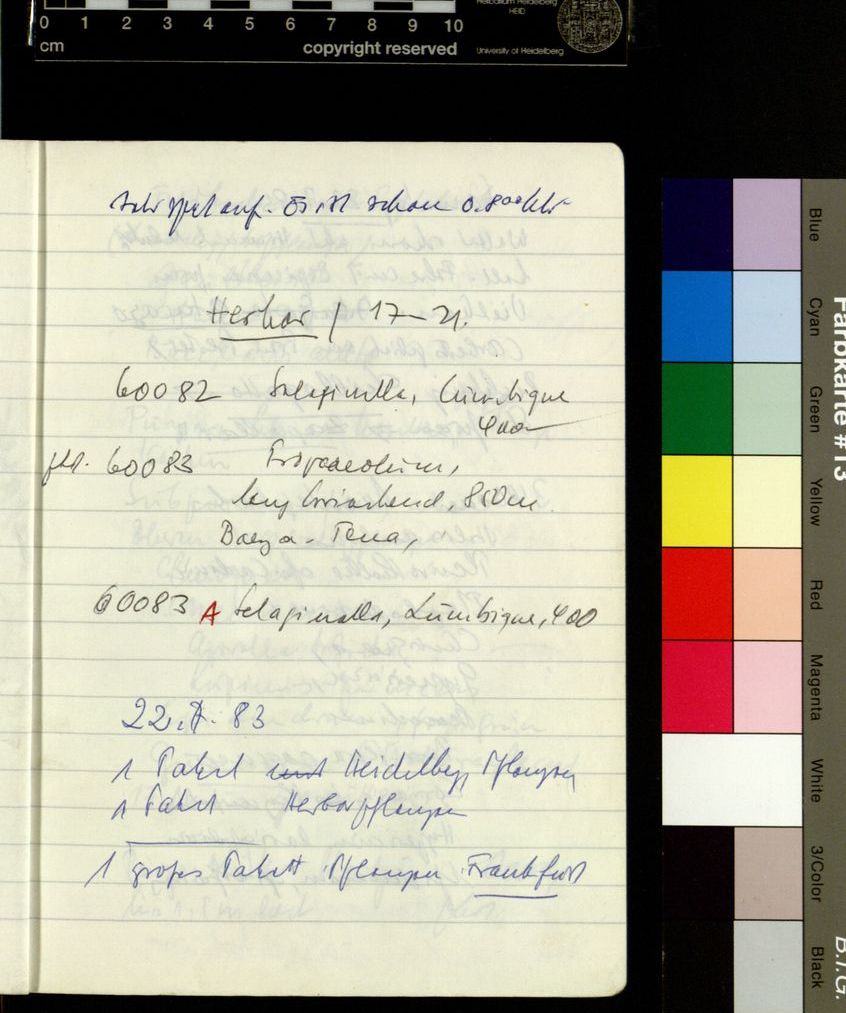 0 1 2 3 4 5 6 7 8 9 10
cm copyright reserved
Herbarium Heidelberg
HEID
University of Heidelberg
schon
Herbar / 17-21.
60082 Selaginella, Cumbique
400
60083 Tropaeolum,
850m.
Baeza - Tena,
60083 A Selaginella, Lumbique, 400
22.7.83
1 Paket Heidelberg Pflanzen
1 Paket Herbarpflanzen
1 großes Paket Pflanzen Frankfurt
Farbkarte #13
B.I.G.
Blue
Cyan
Green
Yellow
Red
Magenta
White
3/Color
Black